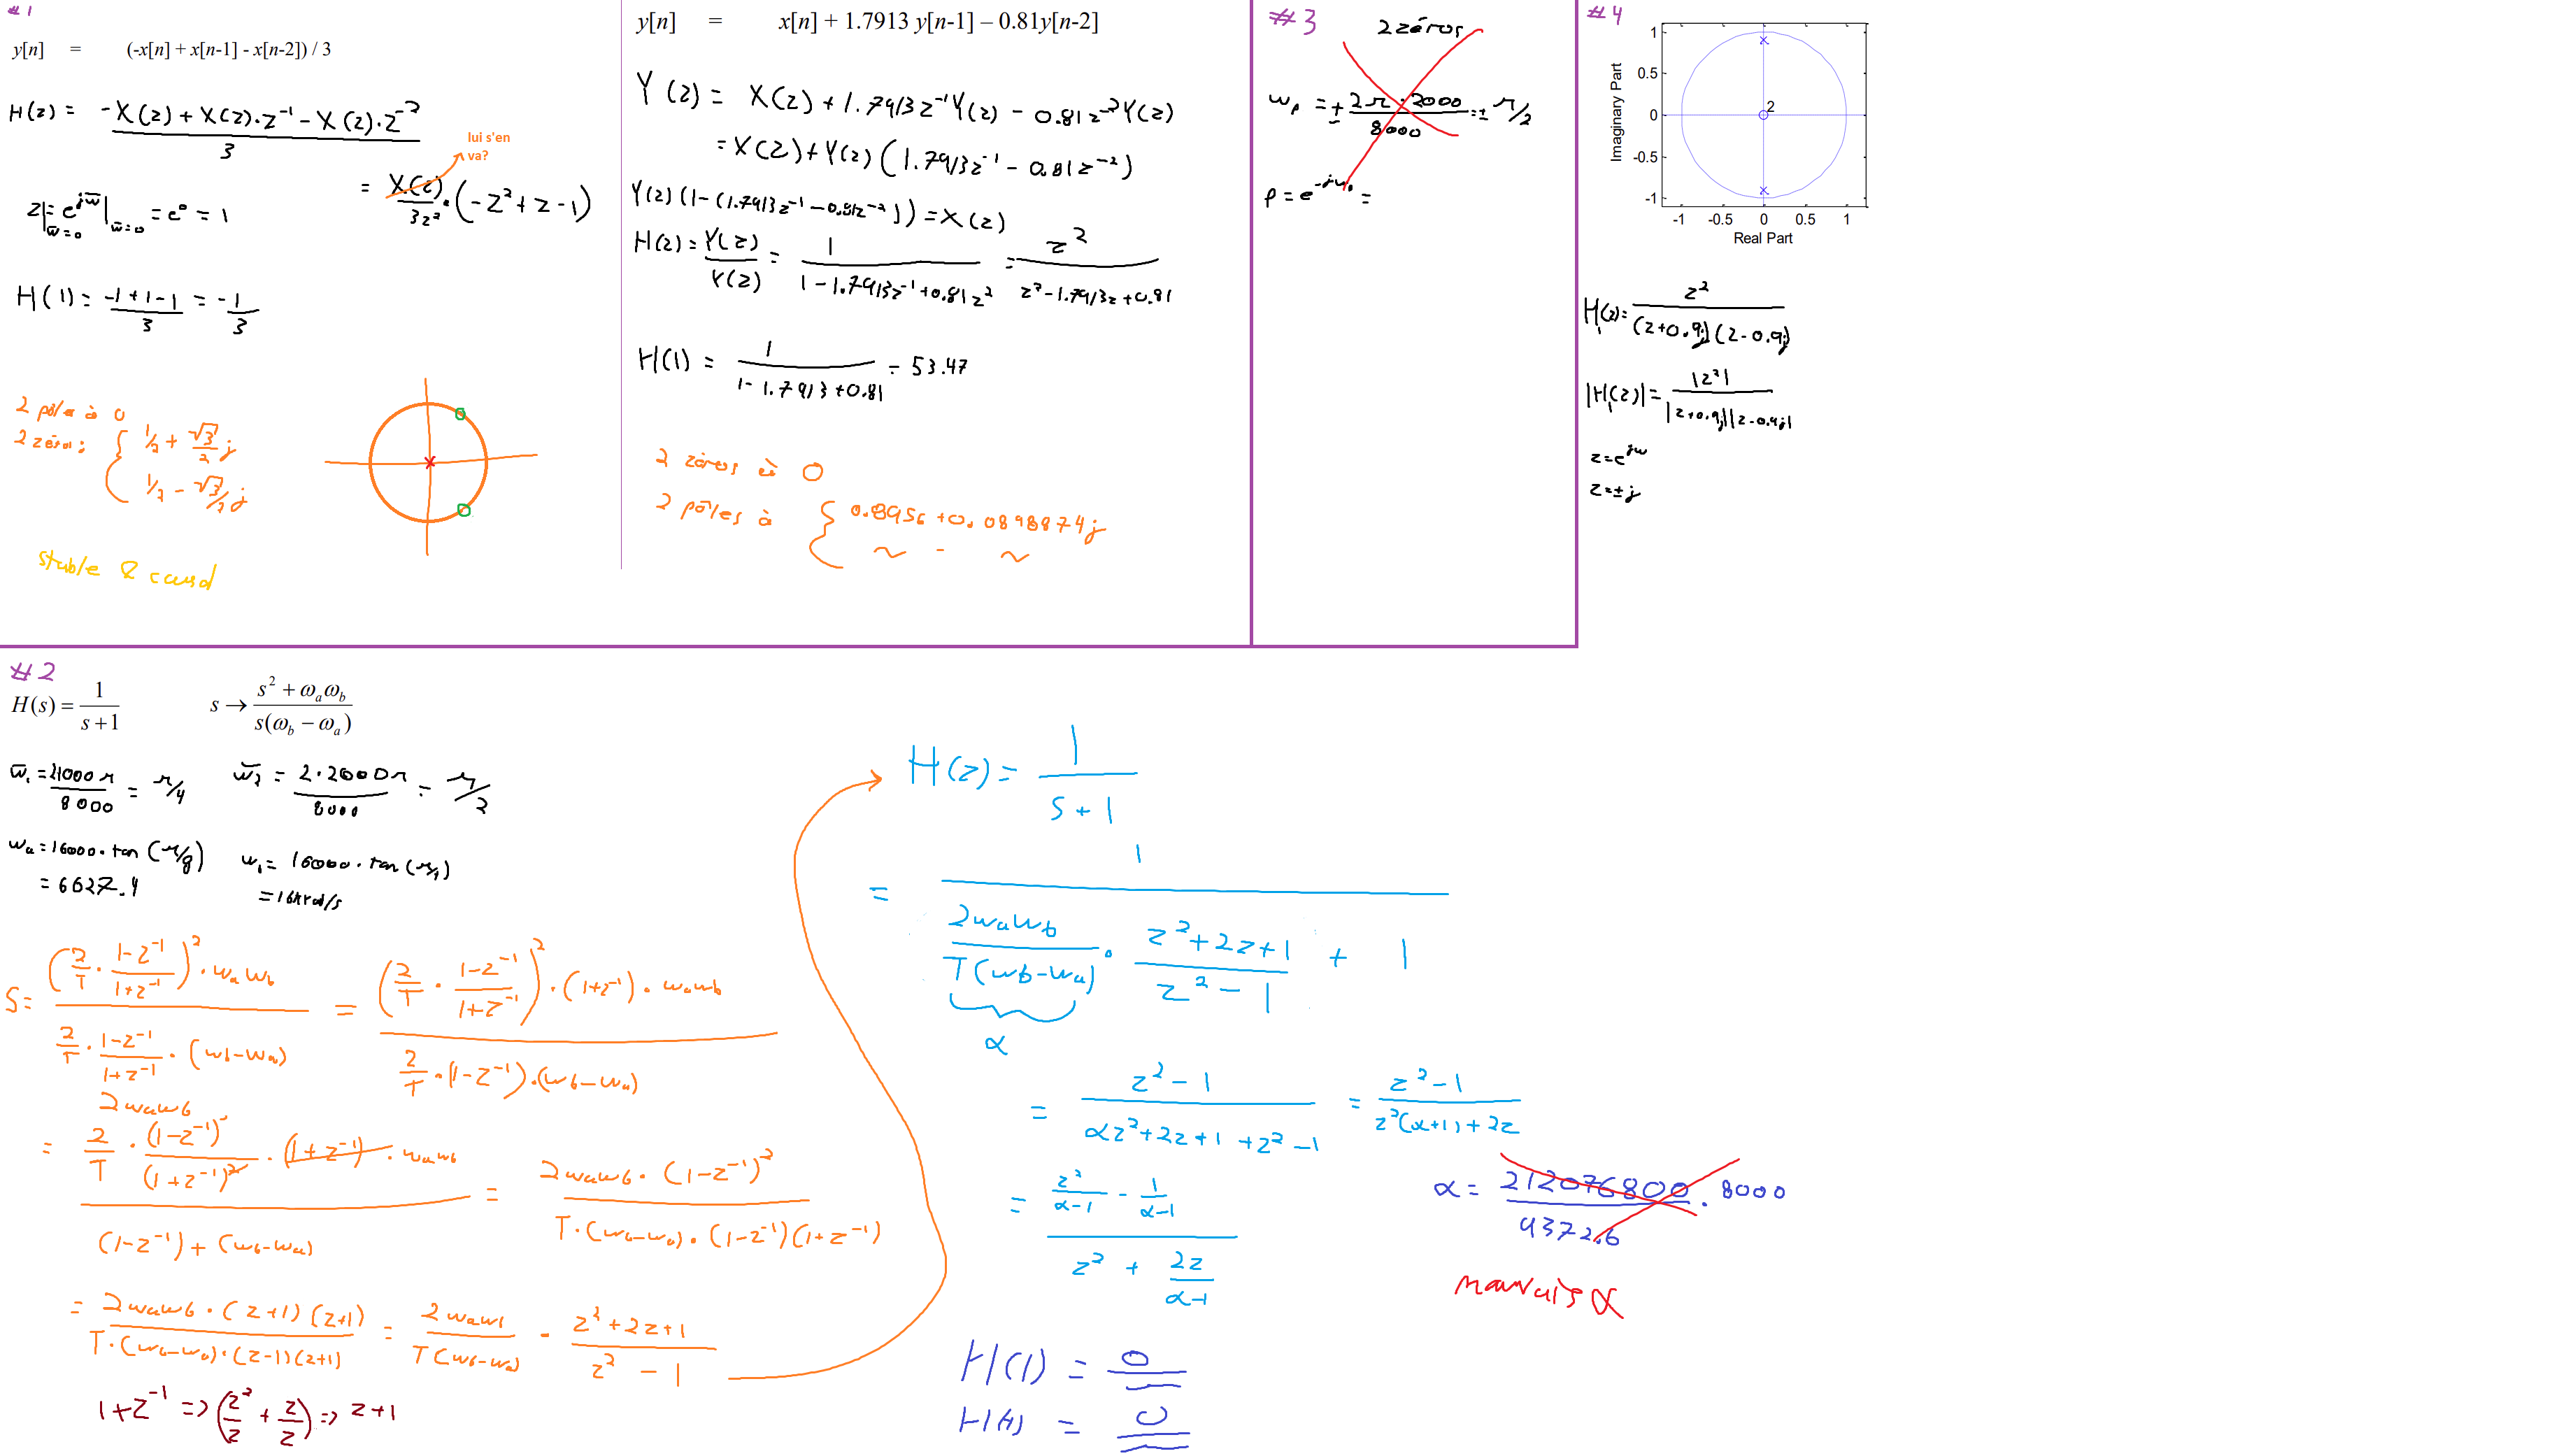 #1
y[n] = (-x[n] + x[n-1] - x[n-2]) / 3
H(z) = (-X(z) + X(z)·z⁻¹ - X(z)·z⁻²) / 3
lui s'en
va?
= X(z)/3z² · (-z² + z - 1)
z|_ω̄=0 = e^jω̄|_ω̄=0 = e⁰ = 1
H(1) = (-1+1-1)/3 = -1/3
2 pôles à 0
2 zéros : { 1/2 + √3/2 j
1/2 - √3/2 j
stable & causal
y[n] = x[n] + 1.7913 y[n-1] – 0.81y[n-2]
Y(z) = X(z) + 1.7913z⁻¹Y(z) - 0.81z⁻²Y(z)
= X(z) + Y(z)(1.7913z⁻¹ - 0.81z⁻²)
Y(z)(1-(1.7913z⁻¹-0.81z⁻²)) = X(z)
H(z) = Y(z)/X(z) = 1/(1-1.7913z⁻¹+0.81z²) = z²/(z²-1.7913z+0.81)
H(1) = 1/(1-1.7913+0.81) = 53.47
2 zéros à 0
2 pôles à { 0.8956 + 0.0898874j
~ - ~
#3
2 zéros
ωp = ± 2π·2000/8000 = ± π/2
p = e^-jω₀ =
#4
1
0.5
0
-0.5
-1
Imaginary Part
2
-1 -0.5 0 0.5 1
Real Part
H₁(z) = z²/((z+0.9j)(z-0.9j))
|H₁(z)| = |z²|/(|z+0.9j||z-0.9j|)
z=e^jω
z=±j
#2
H(s) = 1/(s+1) s → (s² + ω_aω_b)/(s(ω_b − ω_a))
ω̄₁ = 21000π/8000 = π/4 ω̄₂ = 2·2000π/8000 = π/2
ωa = 16000·tan(π/8) ω₁ = 16000·tan(π/4)
= 6627.4 = 16krad/s
S = ((2/T · (1-z⁻¹)/(1+z⁻¹))² · ωaωb) / (2/T · (1-z⁻¹)/(1+z⁻¹) · (ωb-ωa)) = ((2/T · (1-z⁻¹)/(1+z⁻¹))² · (1+z⁻¹) · ωaωb) / (2/T · (1-z⁻¹)·(ωb-ωa))
2ωaωb
= (2/T · (1-z⁻¹)²/(1+z⁻¹)² · (1+z⁻¹) · ωaωb) / ((1-z⁻¹) + (ωb-ωa)) = (2ωaωb · (1-z⁻¹)²) / (T·(ωb-ωa)·(1-z⁻¹)(1+z⁻¹))
= (2ωaωb · (z+1)(z+1)) / (T·(ωb-ωa)·(z-1)(z+1)) = 2ωaωb/(T(ωb-ωa)) · (z²+2z+1)/(z²-1)
1+z⁻¹ => (z²/z + z/z) => z+1
H(z) = 1/(s+1)
= 1 / (2ωaωb/(T(ωb-ωa)) · (z²+2z+1)/(z²-1) + 1)
α
= (z²-1)/(αz²+2z+1+z²-1) = (z²-1)/(z²(α+1)+2z)
= (z²/(α-1) - 1/(α-1)) / (z² + 2z/(α-1))
α = 212076800/9372.6 · 8000
mauvais α
H(1) = 0
= 0